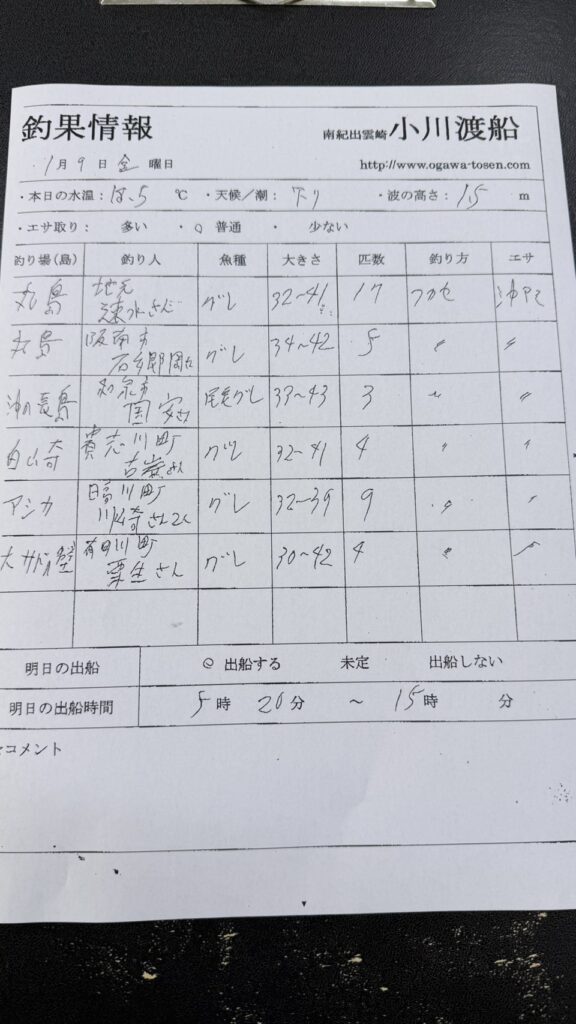 釣果情報 南紀出雲崎 小川渡船
1月 9日 金 曜日 http://www.ogawa-tosen.com
・本日の水温：18.5 ℃ ・天候／潮：下り ・波の高さ：1.5 m
・エサ取り： 多い ・○ 普通 ・ 少ない
釣り場(島) 釣り人 魚種 大きさ 匹数 釣り方 エサ
丸島 地元 グレ 32〜41 17 フカセ
丸島 阪南市 グレ 34〜42 5 〃 〃
沖の長島 和泉市 国安 尾長グレ 33〜43 3 〃 〃
貴志川町 グレ 32〜41 4 〃 〃
アシカ 日高川町 川崎さん グレ 32〜39 9 〃 〃
有田川町 栗生さん グレ 30〜42 4 〃 〃
明日の出船 ○ 出船する 未定 出船しない
明日の出船時間 5時 20分 〜 15時 分
コメント